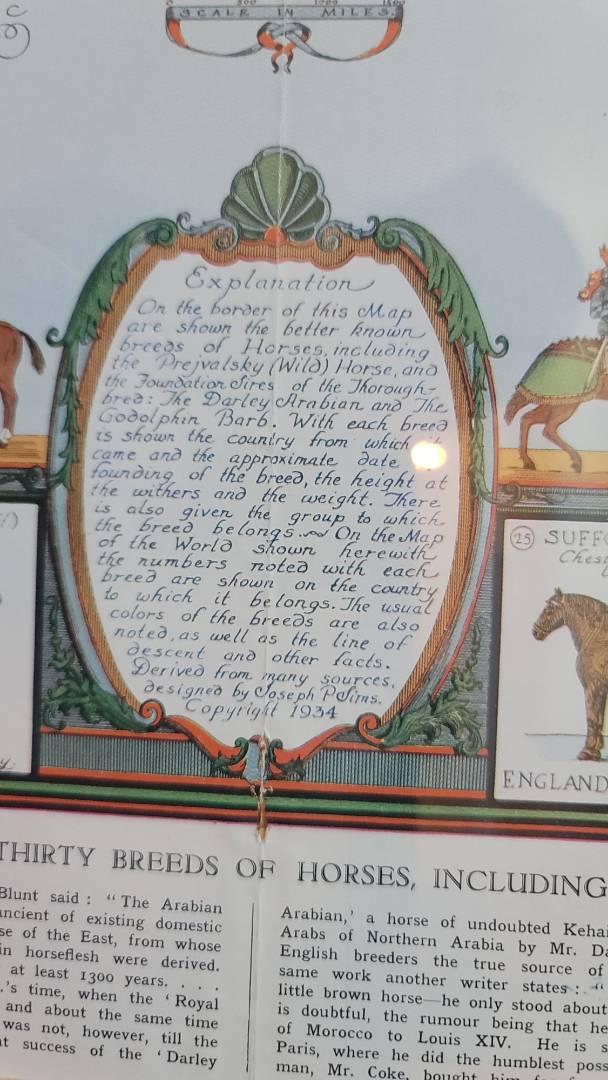 C
0 500 1000 1500
SCALE IN MILES
Explanation
On the border of this Map
are shown the better known
breeds of Horses, including
the Prejvalsky (Wild) Horse, and
the Foundation Sires of the Thorough-
bred: The Darley Arabian and The
Godolphin Barb. With each breed
is shown the country from which
came and the approximate date
founding of the breed, the height at
the withers and the weight. There
is also given the group to which
the breed belongs. On the Map
of the World shown herewith
the numbers noted with each
breed are shown on the country
to which it belongs. The usual
colors of the breeds are also
noted, as well as the line of
descent and other facts.
Derived from many sources,
designed by Joseph P. Sims.
Copyright 1934
25 SUFFO
Ches
ENGLAND
THIRTY BREEDS OF HORSES, INCLUDING
Blunt said : "The Arabian
ancient of existing domestic
se of the East, from whose
in horseflesh were derived.
at least 1300 years. . . .
.'s time, when the 'Royal
and about the same time
was not, however, till the
at success of the 'Darley
Arabian,' a horse of undoubted Kehai
Arabs of Northern Arabia by Mr. Da
English breeders the true source of
same work another writer states : "
little brown horse—he only stood about
is doubtful, the rumour being that he
of Morocco to Louis XIV. He is s
Paris, where he did the humblest poss
man, Mr. Coke, bought him